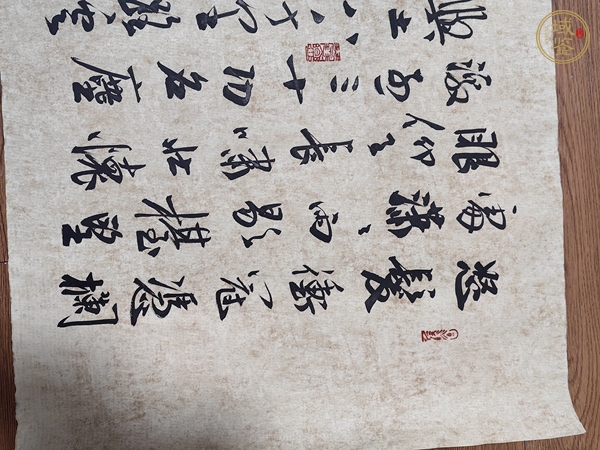 怒髮衝冠憑欄
處瀟瀟雨歇抬望
眼仰天長嘯壯懷
激烈三十功名塵
與土八千里路雲
咸鉴